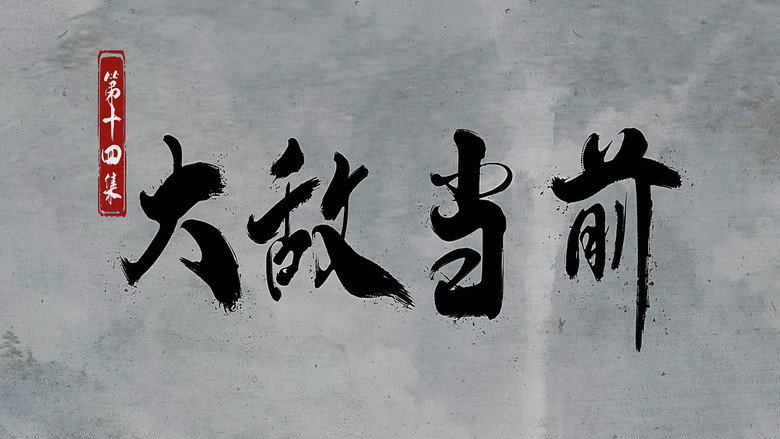 第十四集
大敌当前